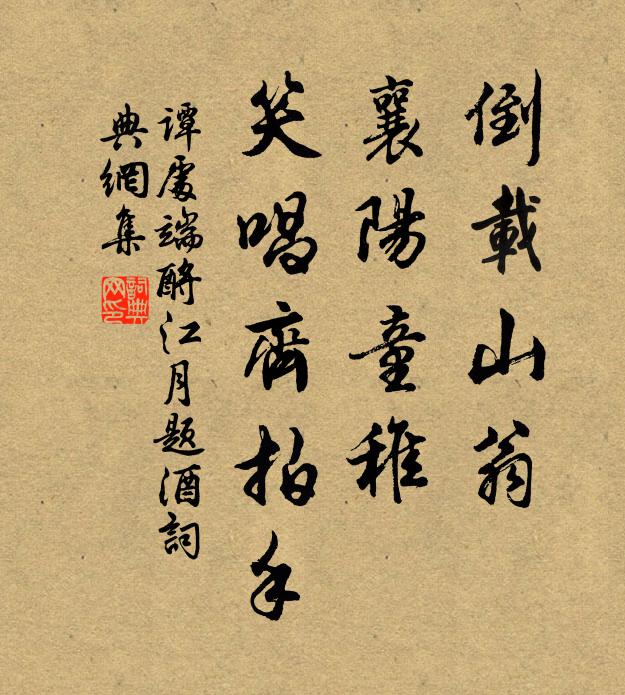 倒載山翁
襄陽童稚
笑唱齊拍手
譚處端酹江月題酒詞
典網集
詞典
网印